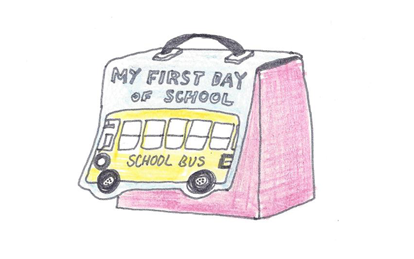 MY FIRST DAY
OF SCHOOL
SCHOOL BUS